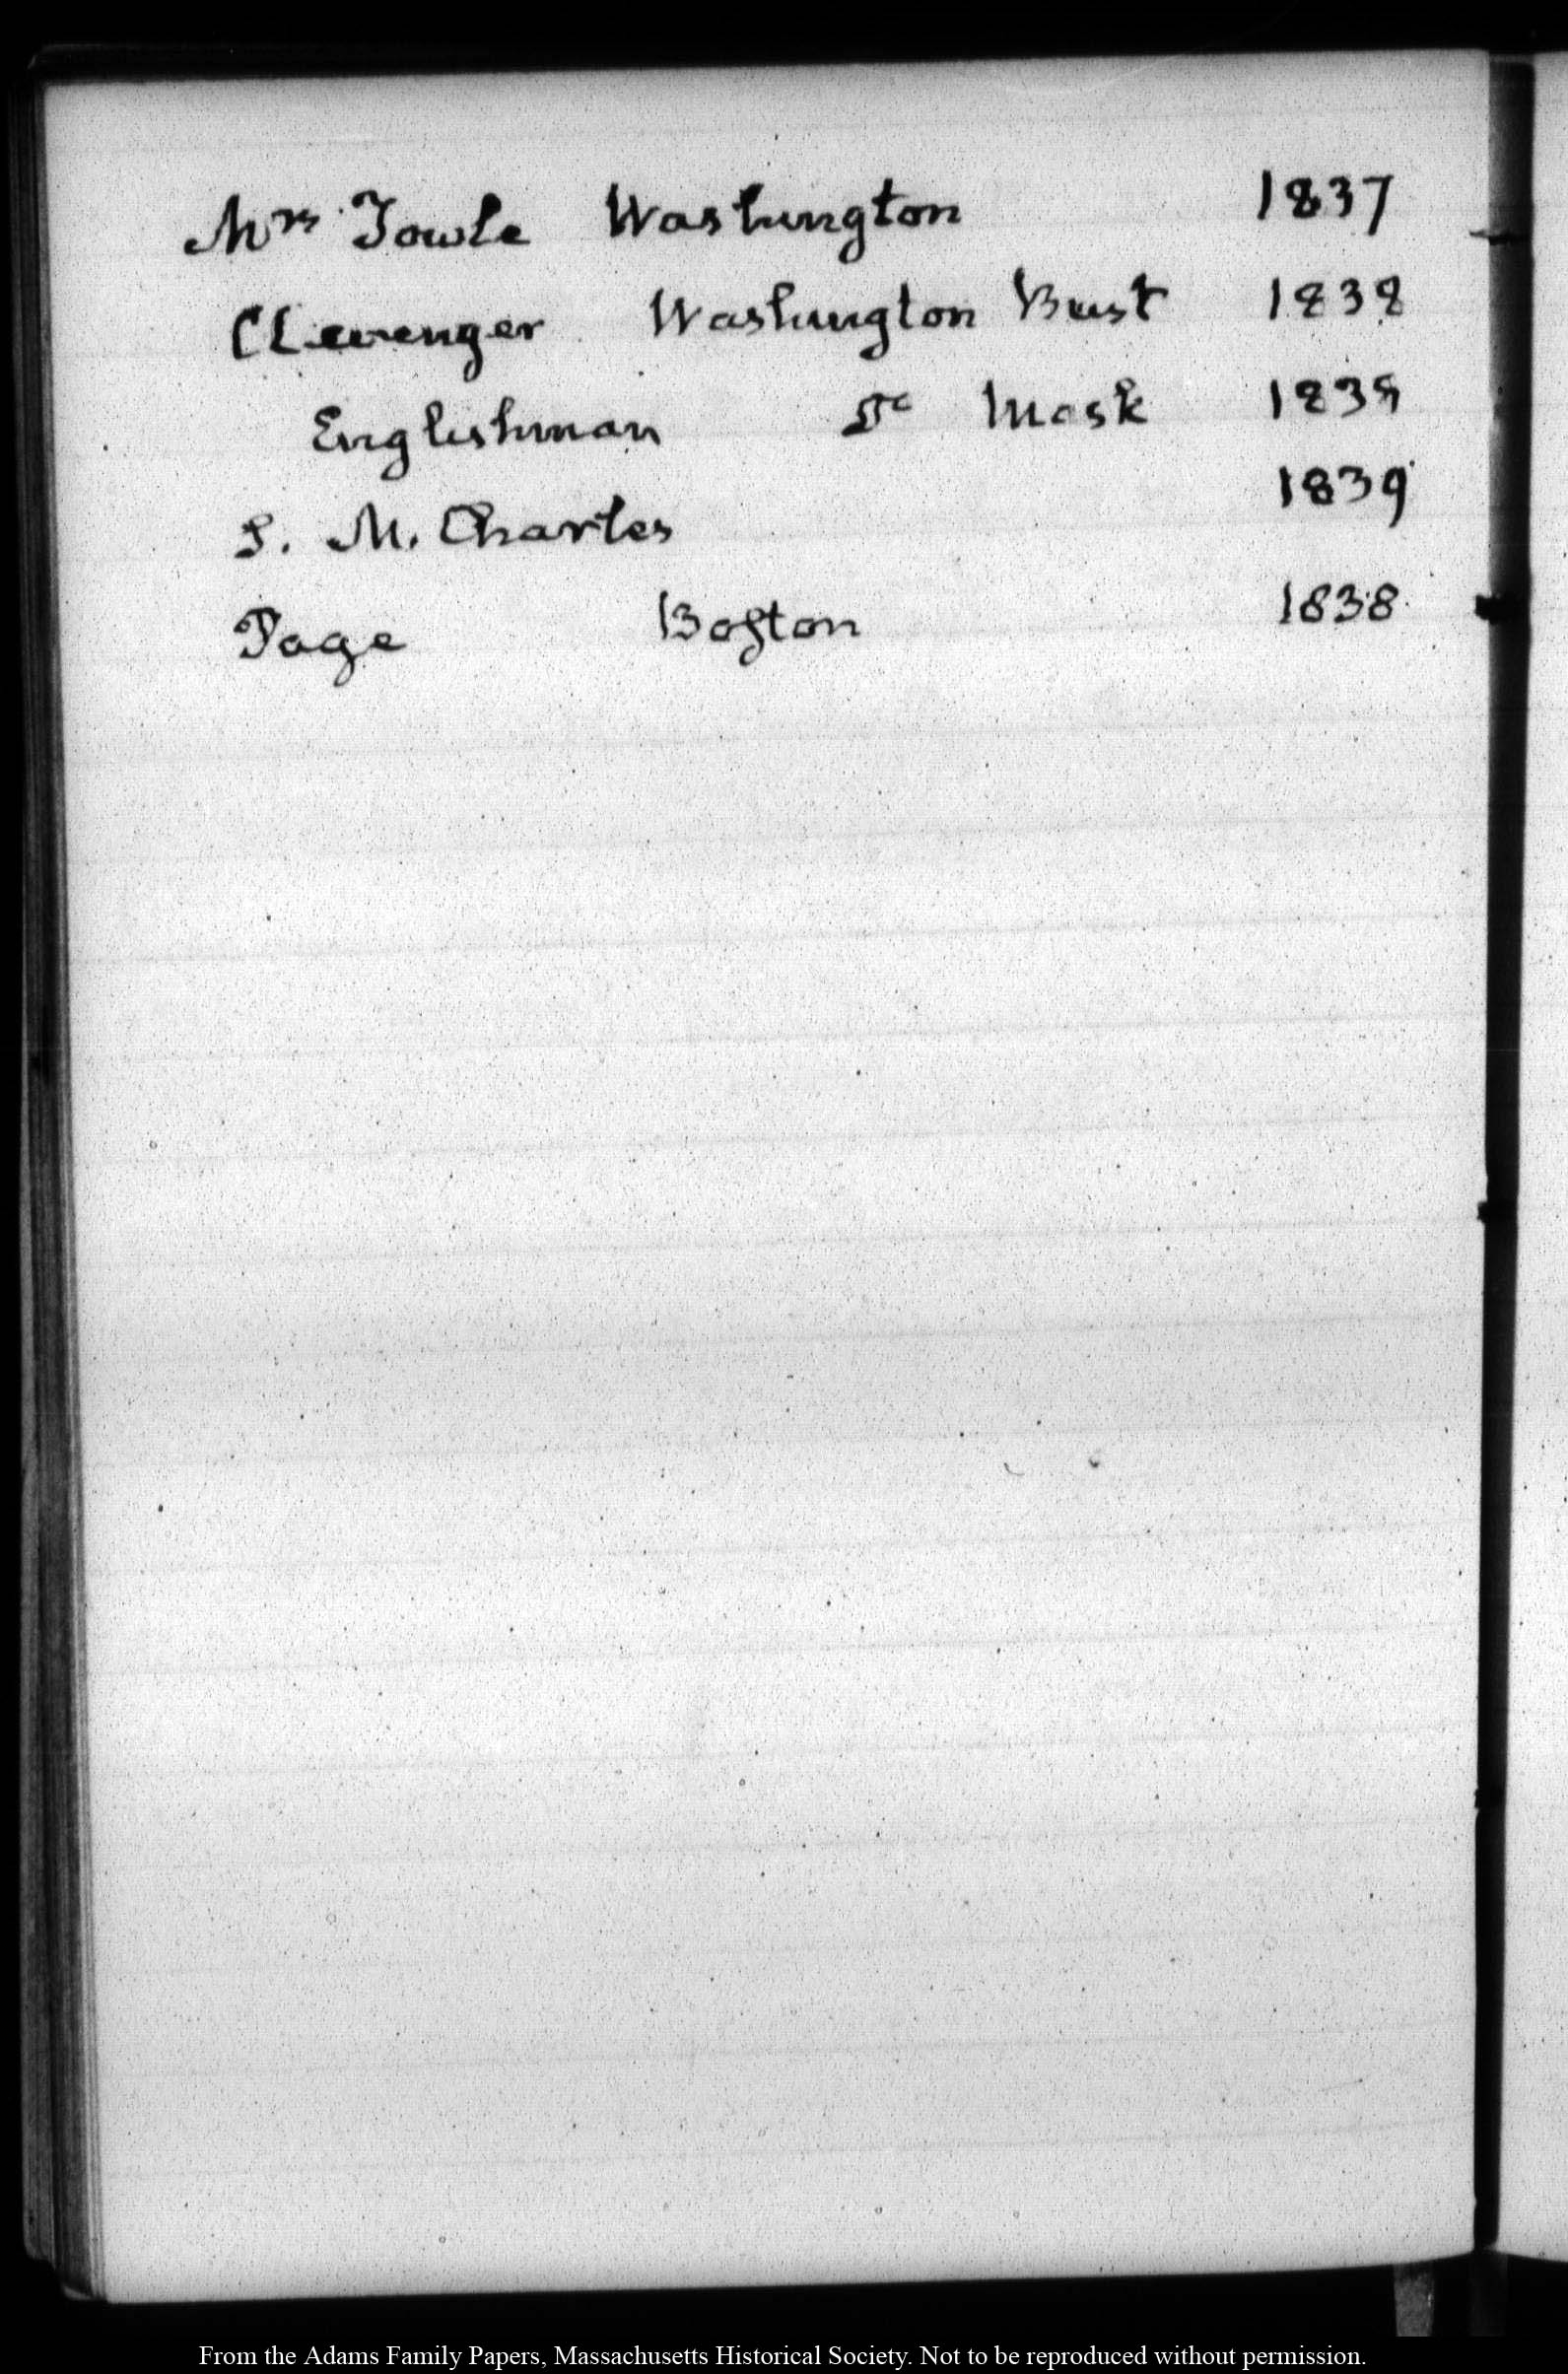 Mrs Towle Washington 1837
Clevenger Washington Bust 1838
Englishman Do Mask 1839
S. M. Charles 1839
Page Boston 1838
From the Adams Family Papers, Massachusetts Historical Society. Not to be reproduced without permission.